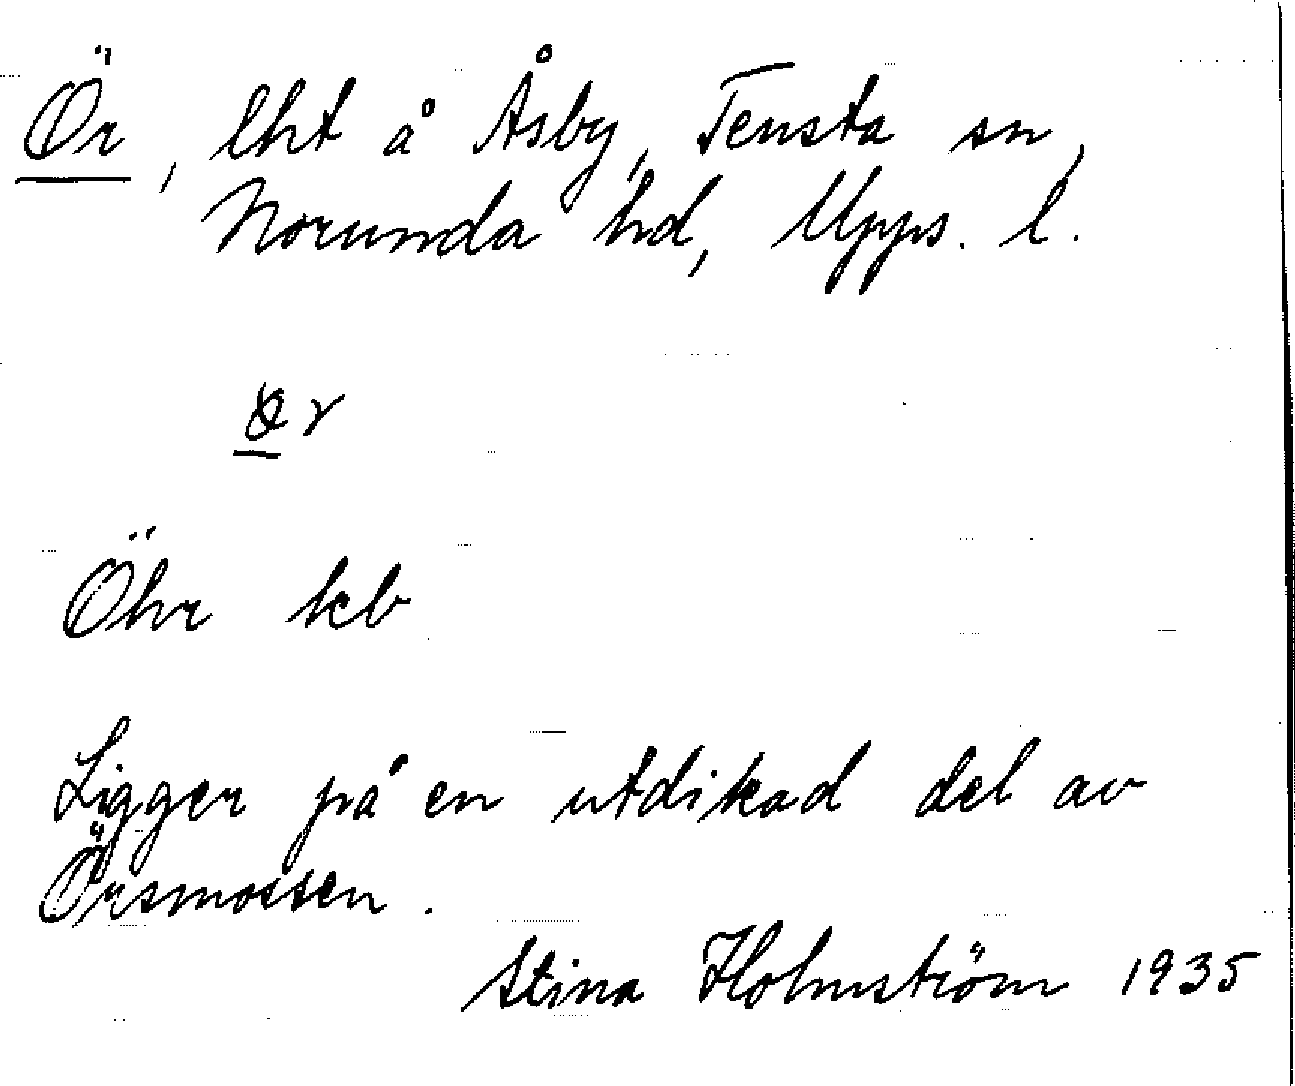 Ör, lht å Åsby, Tensta sn,
Norunda hd, Upps. l.
Öhr kb
Ligger på en utdikad del av
Örsmossen.
Stina Holmström 1935